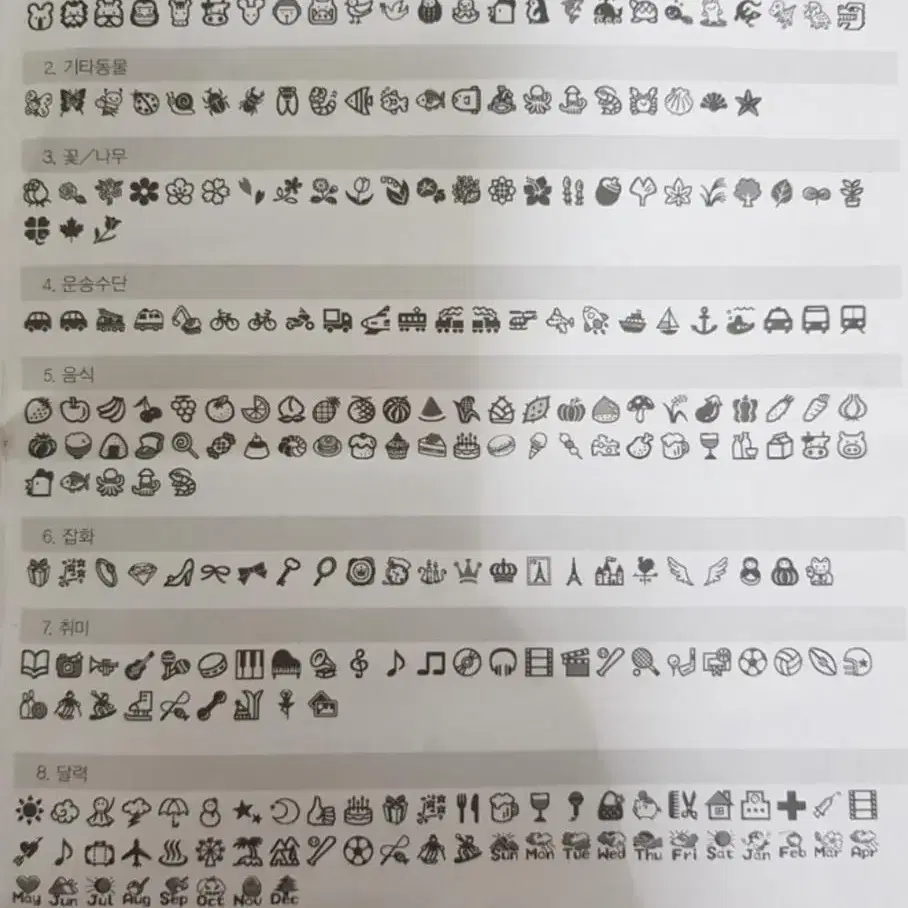 2. 기타동물
3. 꽃/나무
4. 운송수단
5. 음식
6. 잡화
7. 취미
8. 달력
Sun Mon Tue Wed Thu Fri Sat Jan Feb Mar Apr
May Jun Jul Aug Sep Oct Nov Dec